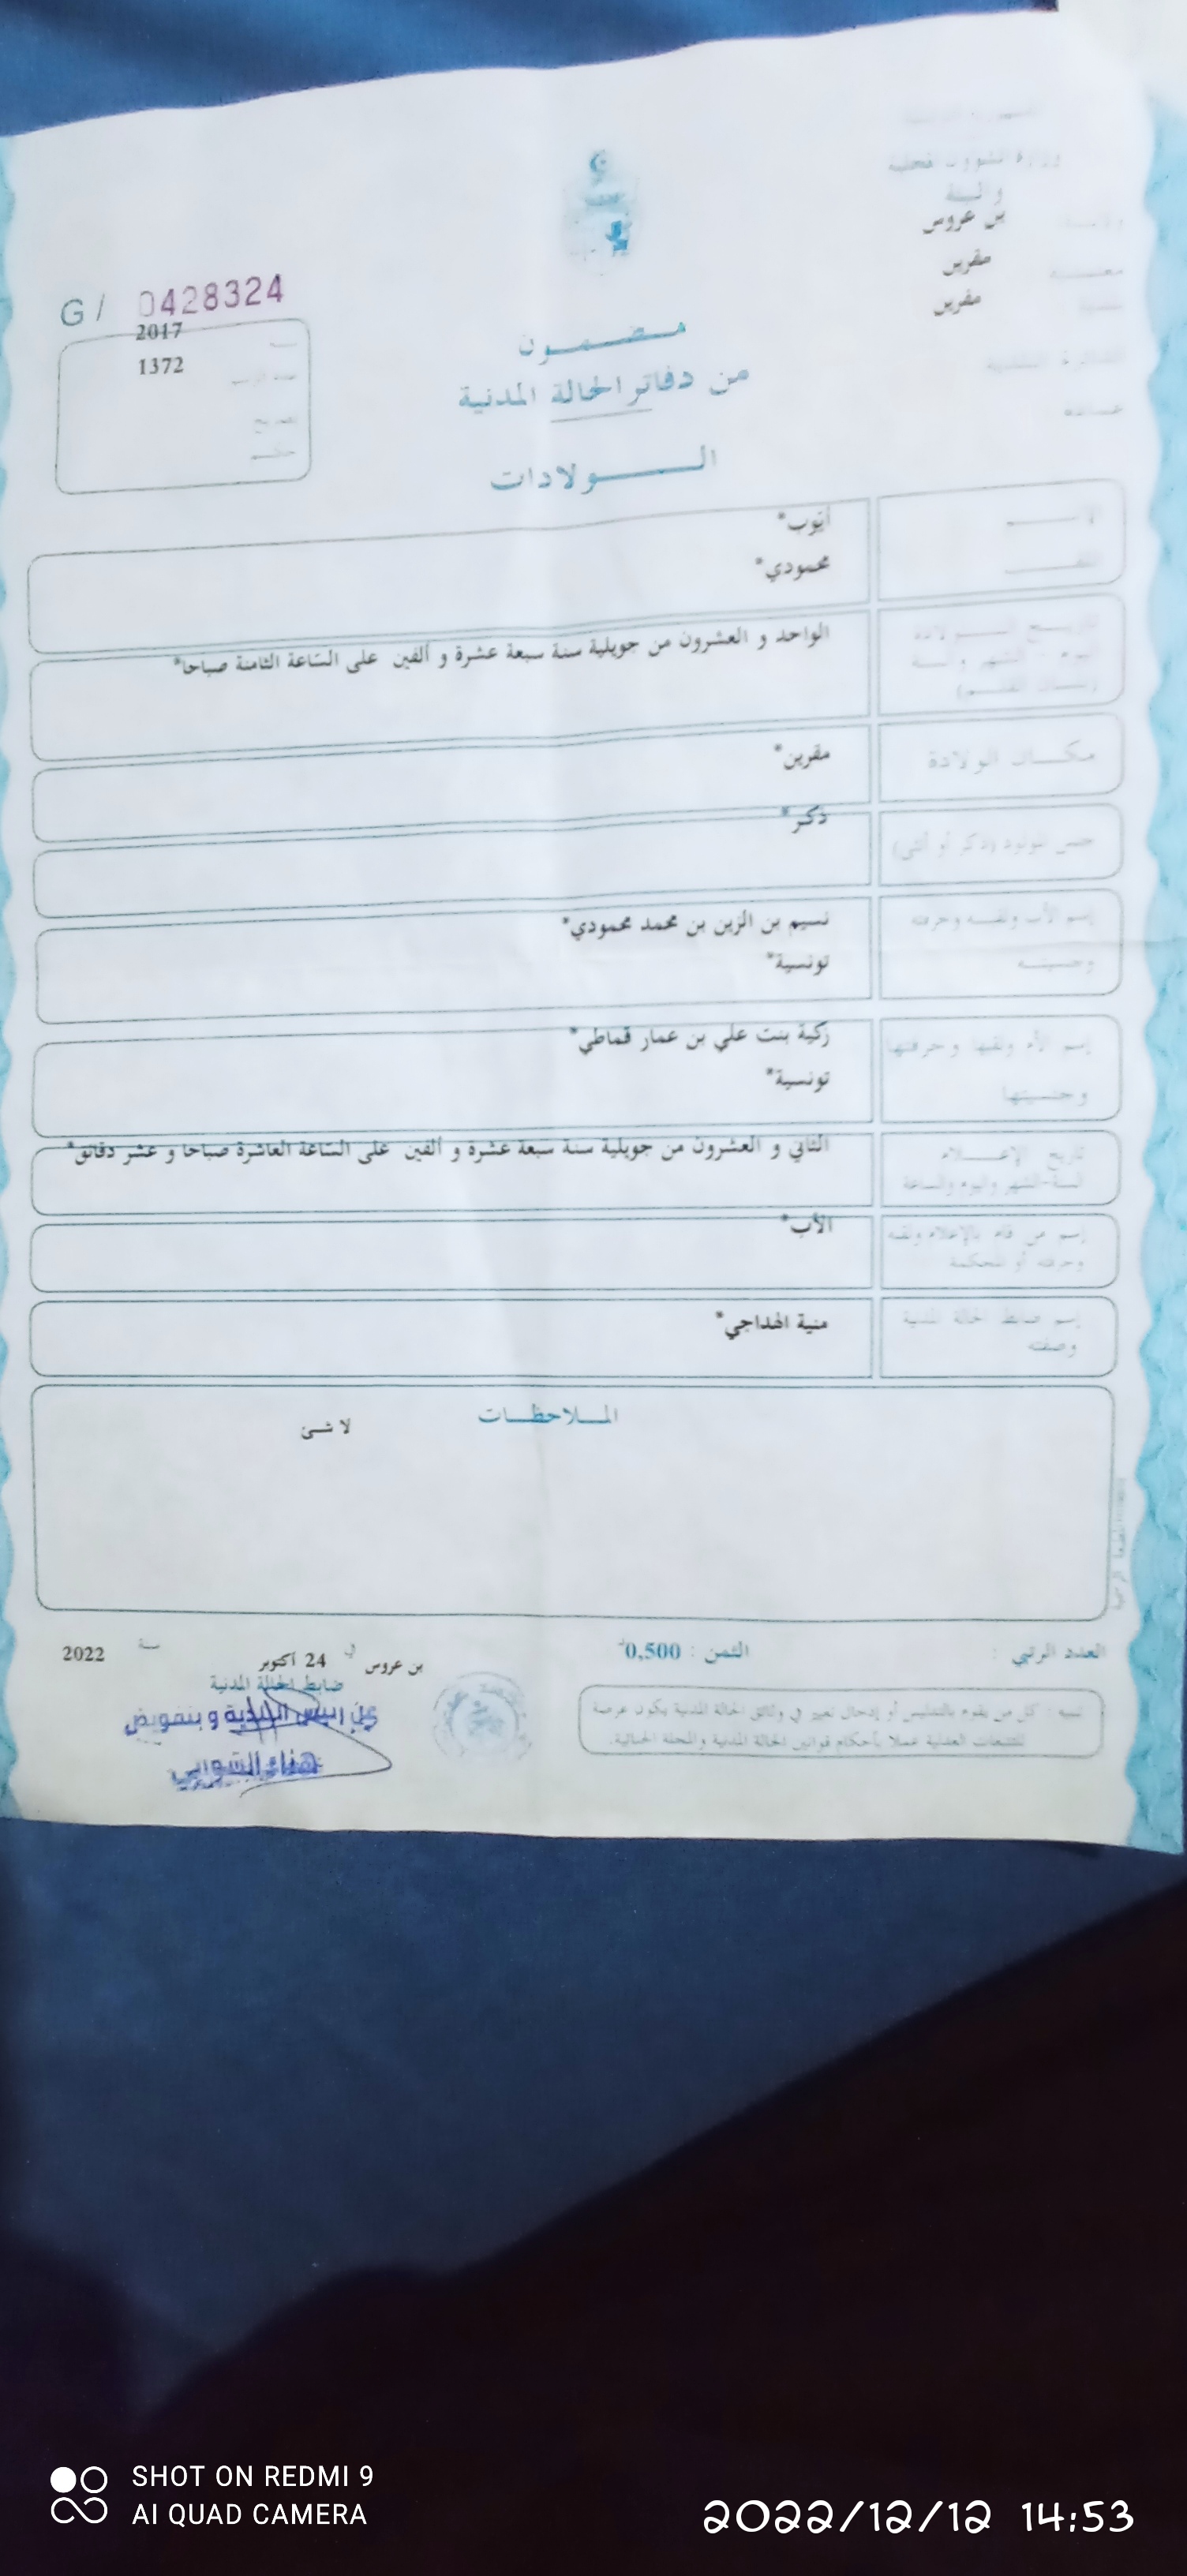 وزارة الشؤون المحلية
و البيئة
بن عروس
مقرين
مقرين
G / 0428324
2017
1372
مضمون
من دفاتر الحالة المدنية
الولادات
أيوب*
محمودي*
الواحد و العشرون من جويلية سنة سبعة عشرة و ألفين على الساعة الثامنة صباحا*
مكان الولادة
مقرين*
جنس المولود (ذكر أو أنثى)
ذكر*
إسم الأب ولقبه وحرفته
وجنسيته
نسيم بن الزين بن محمد محمودي*
تونسية*
إسم الأم ولقبها وحرفتها
وجنسيتها
زكية بنت علي بن عمار قماطي*
تونسية*
تاريخ الإعلام
السنة-الشهر واليوم والساعة
الثاني و العشرون من جويلية سنة سبعة عشرة و ألفين على الساعة العاشرة صباحا و عشر دقائق*
إسم من قام بالإعلام ولقبه
وحرفته أو المحكمة
الأب*
إسم ضابط الحالة المدنية
وصفته
منية الهداجي*
الملاحظات
لا شئ
العدد الرتبي :
الثمن : 0,500د
بن عروس في 24 أكتوبر سنة 2022
ضابط الحالة المدنية
عن رئيس البلدية و بتفويض
تنبيه : كل من يقوم بالتدليس أو إدخال تغيير في وثائق الحالة المدنية يكون عرضة
للتتبعات العدلية عملا بأحكام قوانين الحالة المدنية والمجلة الجنائية.
SHOT ON REDMI 9
AI QUAD CAMERA
2022/12/12 14:53